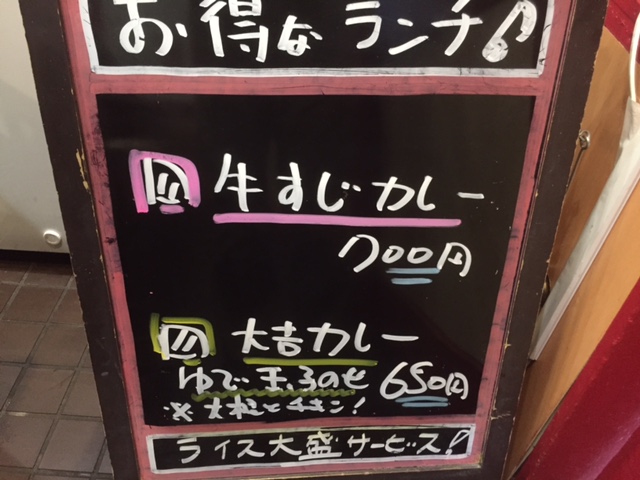 お得なランチ♪
牛すじカレー
700円
大吉カレー
ゆで玉子のせ 650円
※大粒とチキン!
ライス大盛サービス!